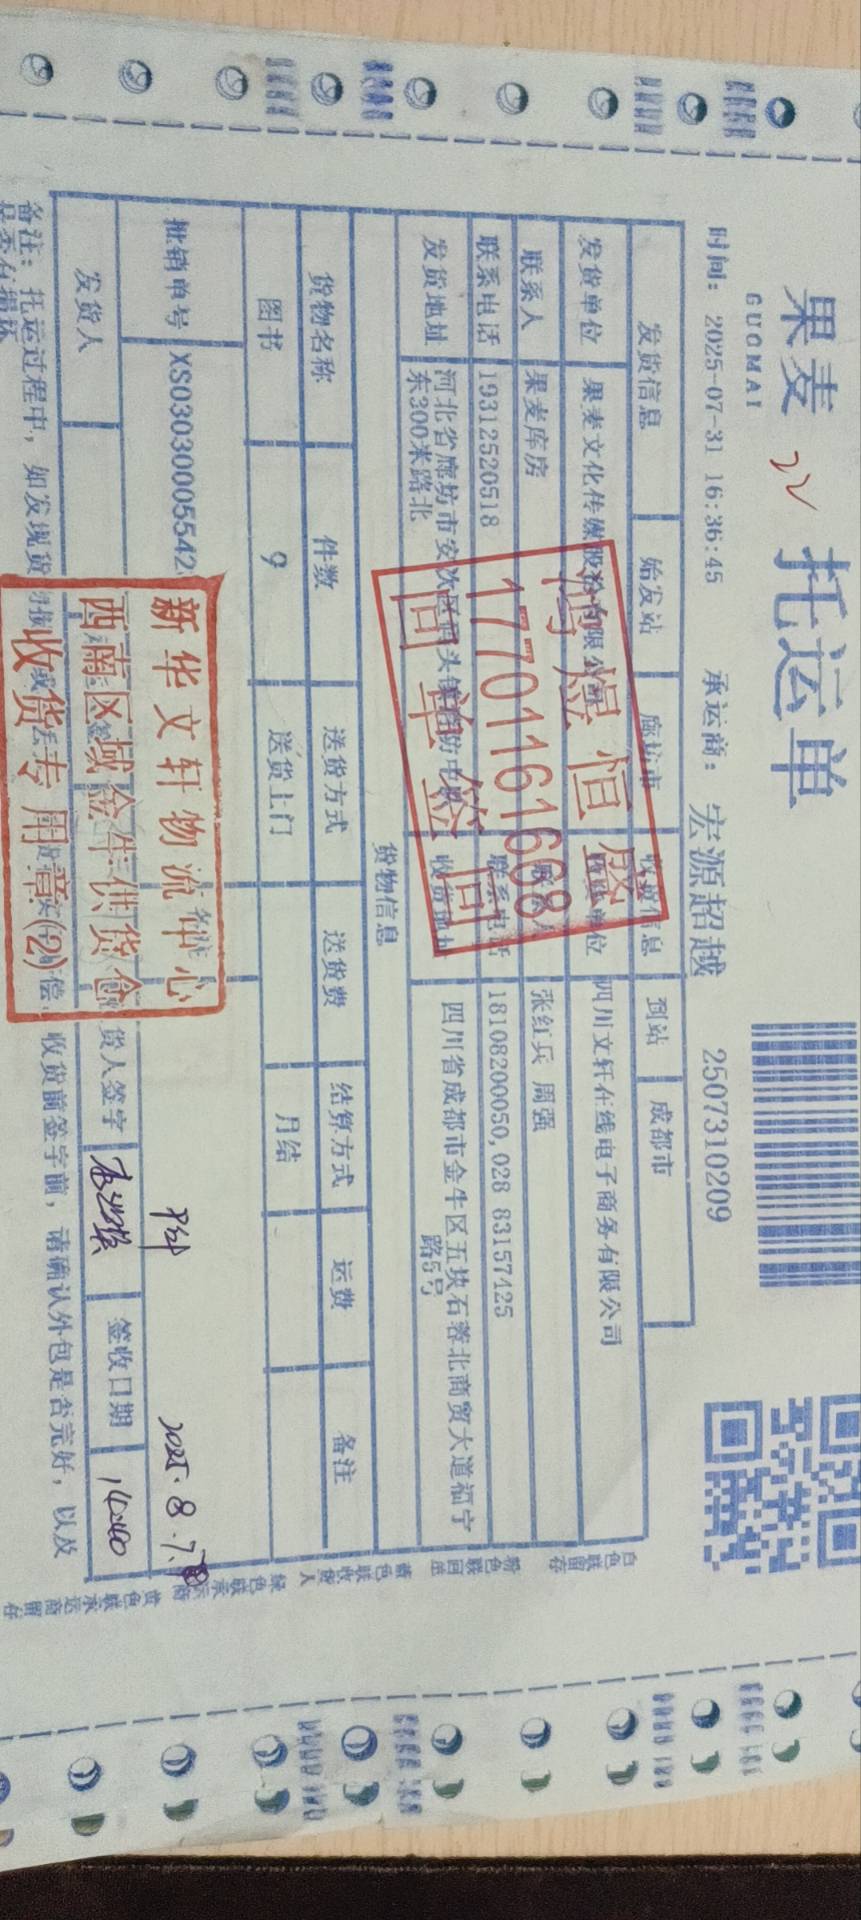 果麦 托运单
GUOMAI
时间: 2025-07-31 16:36:45 承运商: 宏源超越 2507310209
发货信息 始发站 廊坊市 收货信息 到站 成都市
发货单位 果麦文化传媒股份有限公司 单位 四川文轩在线电子商务有限公司
联系人 果麦库房 联系人 张红兵 周强
联系电话 19312520518 联系电话 18108200050,028 83157425
发货地址 河北省廊坊市安次区码头镇 收货地址 四川省成都市金牛区五块石蓉北商贸大道福宁
东300米路北 路5号
恒盛
17701161698
回单签回
货物信息
货物名称 件数 送货方式 送货费 结算方式 运费 备注
图书 9 送货上门 月结
批销单号 XS03030005542
2025.8.7.
发货人 货人签字 签收日期 14:40
新华文轩物流中心
西南区域金牛供货仓
收货专用章(2)
备注: 托运过程中, 如发现货 偿, 收货前签字前, 请确认外包是否完好, 以及
是否有损坏
白色联留存 粉色联回单 蓝色联收货人 绿色联承运商 黄色联承运商留存